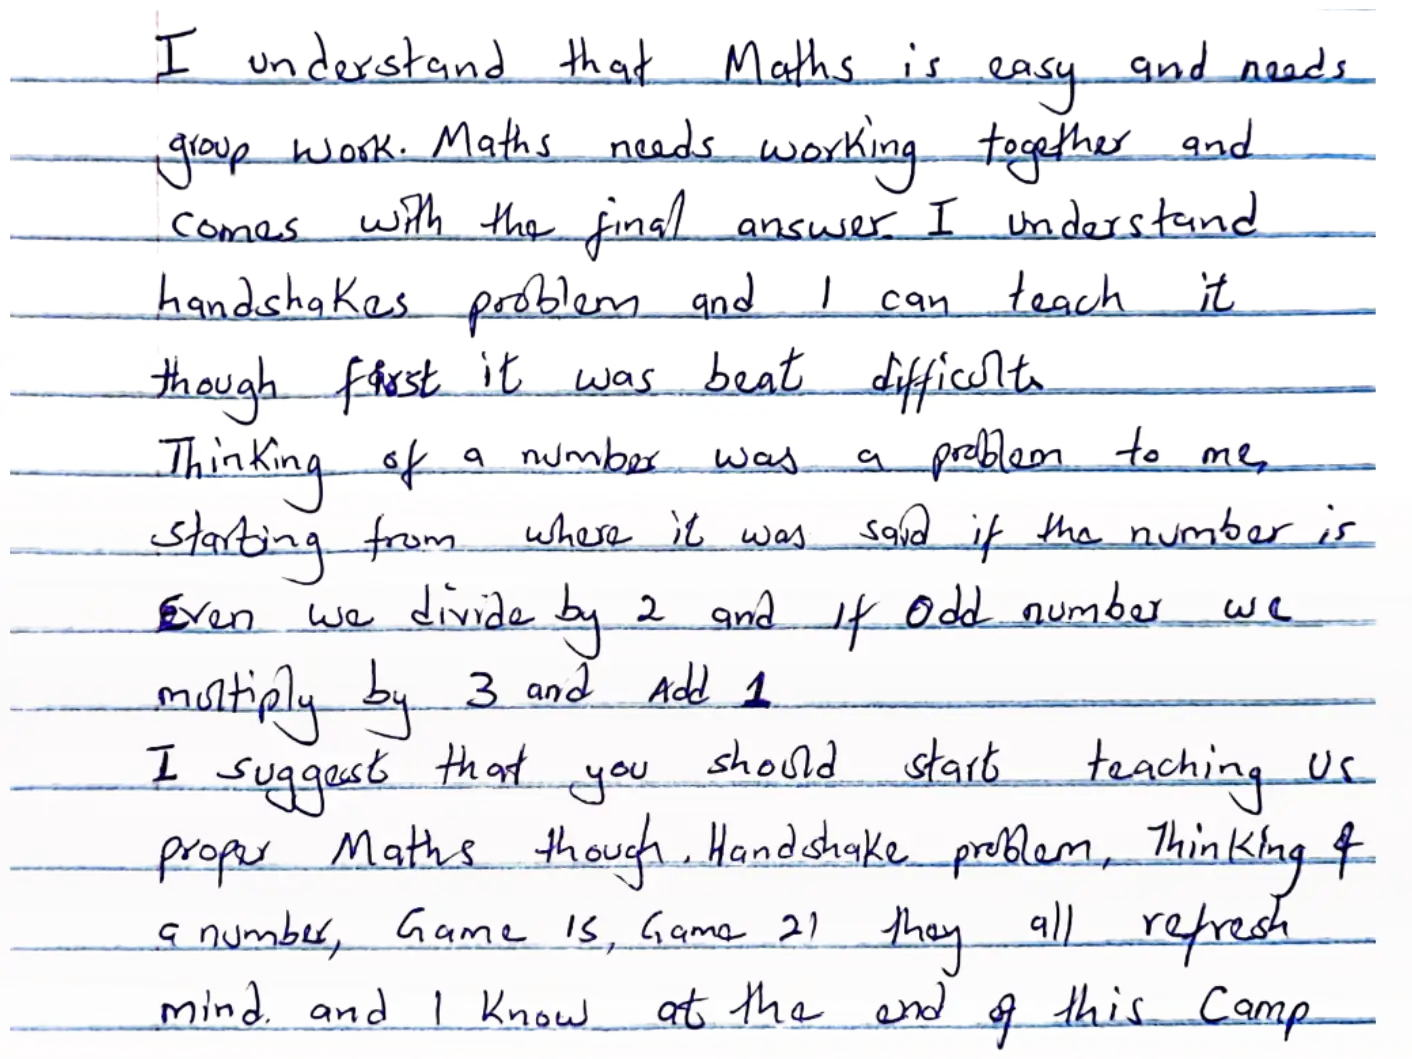 I understand that Maths is easy and needs
group work. Maths needs working together and
comes with the final answer. I understand
handshakes problem and I can teach it
though first it was beat difficult.
Thinking of a number was a problem to me,
starting from where it was said if the number is
Even we divide by 2 and if Odd number we
multiply by 3 and Add 1
I suggest that you should start teaching us
proper Maths though. Handshake problem, Thinking of
a number, Game 15, Game 21 they all refresh
mind. and I know at the end of this Camp